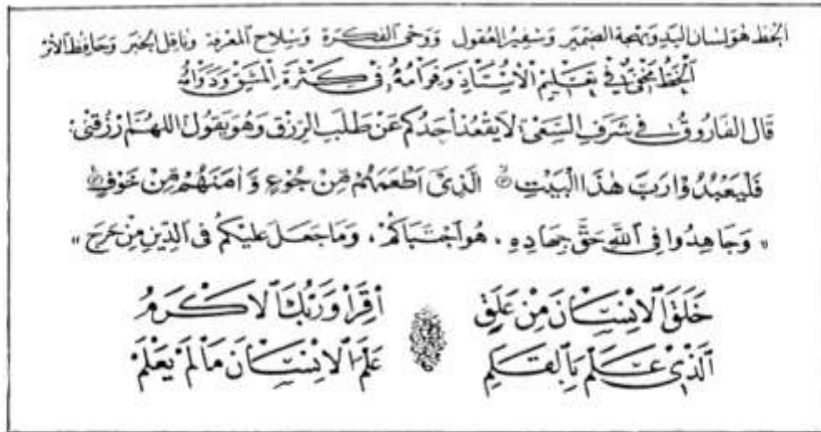 الخط هو لسان اليد وبهجة الضمير وسفير العقول ووحي الفكرة وسلاح المعرفة وناقل الخبر وحافظ الأثر
الخط مخفي في تعليم الأستاذ وقوامه في كثرة المشق ودوامه
قال الفاروق في شرف السعي، لا يقعد أحدكم عن طلب الرزق وهو يقول اللهم ارزقني.
فَلْيَعْبُدُوا رَبَّ هٰذَا الْبَيْتِ الَّذِي أَطْعَمَهُمْ مِنْ جُوعٍ وَآمَنَهُمْ مِنْ خَوْفٍ
«وجاهدوا في الله حق جهاده، هو اجتباكم، وما جعل عليكم في الدين من حرج»
خَلَقَ الْإِنْسَانَ مِنْ عَلَقٍ اقْرَأْ وَرَبُّكَ الْأَكْرَمُ
الَّذِي عَلَّمَ بِالْقَلَمِ عَلَّمَ الْإِنْسَانَ مَا لَمْ يَعْلَمْ